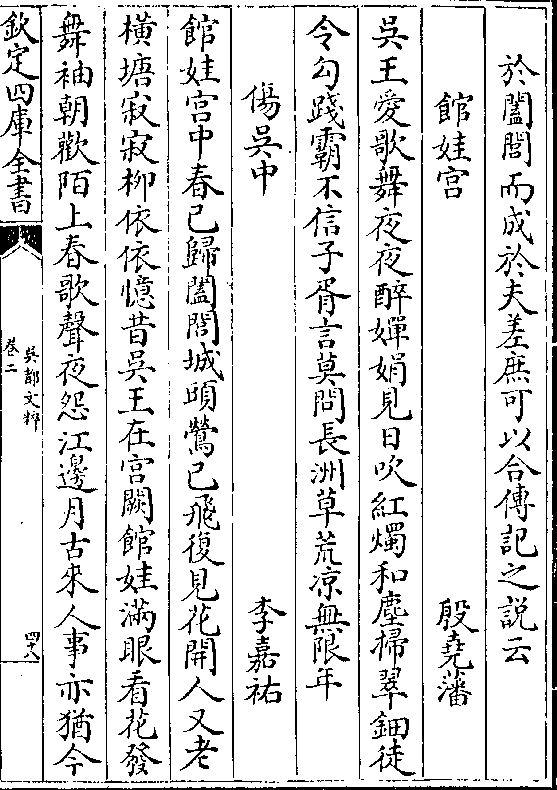 於闔閭而成於夫差庶可以合傳記之説云
館娃宫　殷堯藩
吳王愛歌舞夜夜醉嬋娟見日吹紅燭和塵掃翠鈿徒
令勾踐霸不信子胥言莫問長洲草荒凉無限年
傷吳中　李嘉祐
館娃宫中春已歸闔閭城頭鶯已飛復見花開人又老
橫塘寂寂柳依依憶昔吳王在宫闕館娃滿眼看花發
舞袖朝歡陌上春歌聲夜怨江邊月古來人事亦猶今
欽定四庫全書
吳都文粹
卷二
四十八